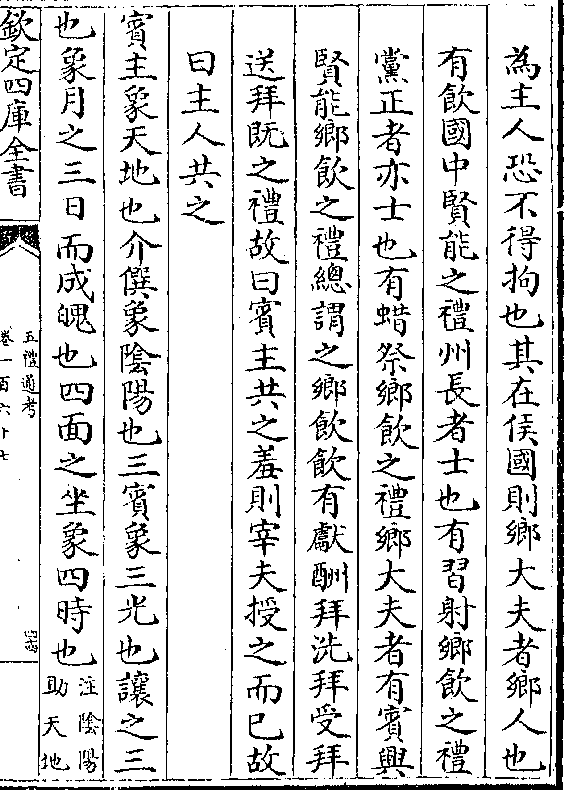 為主人恐不得拘也其在侯國則鄉大夫者鄉人也
有飲國中賢能之禮州長者士也有習射鄉飲之禮
黨正者亦士也有蜡祭鄉飲之禮鄉大夫者有賓興
賢能鄉飲之禮總謂之鄉飲飲有獻酬拜洗拜受拜
送拜既之禮故曰賓主共之羞則宰夫授之而已故
曰主人共之
賓主象天地也介僎象陰陽也三賓象三光也讓之三
也象月之三日而成魄也四面之坐象四時也注陰陽
助天地
欽定四庫全書
五禮通考
卷一百六十七